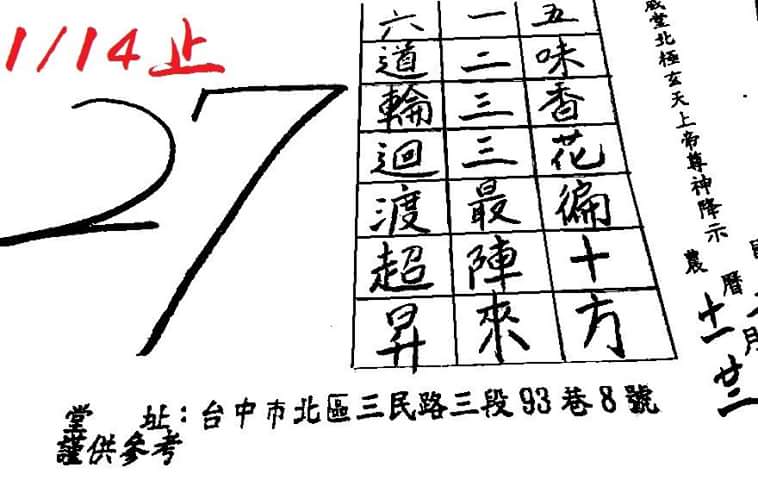 1/14止
27
五味香花徧十方
一二三三最陣來
六道輪迴渡超昇
堂北極玄天上帝尊神降示
農曆十一月廿二
堂　址：台中市北區三民路三段93巷8號
謹供參考